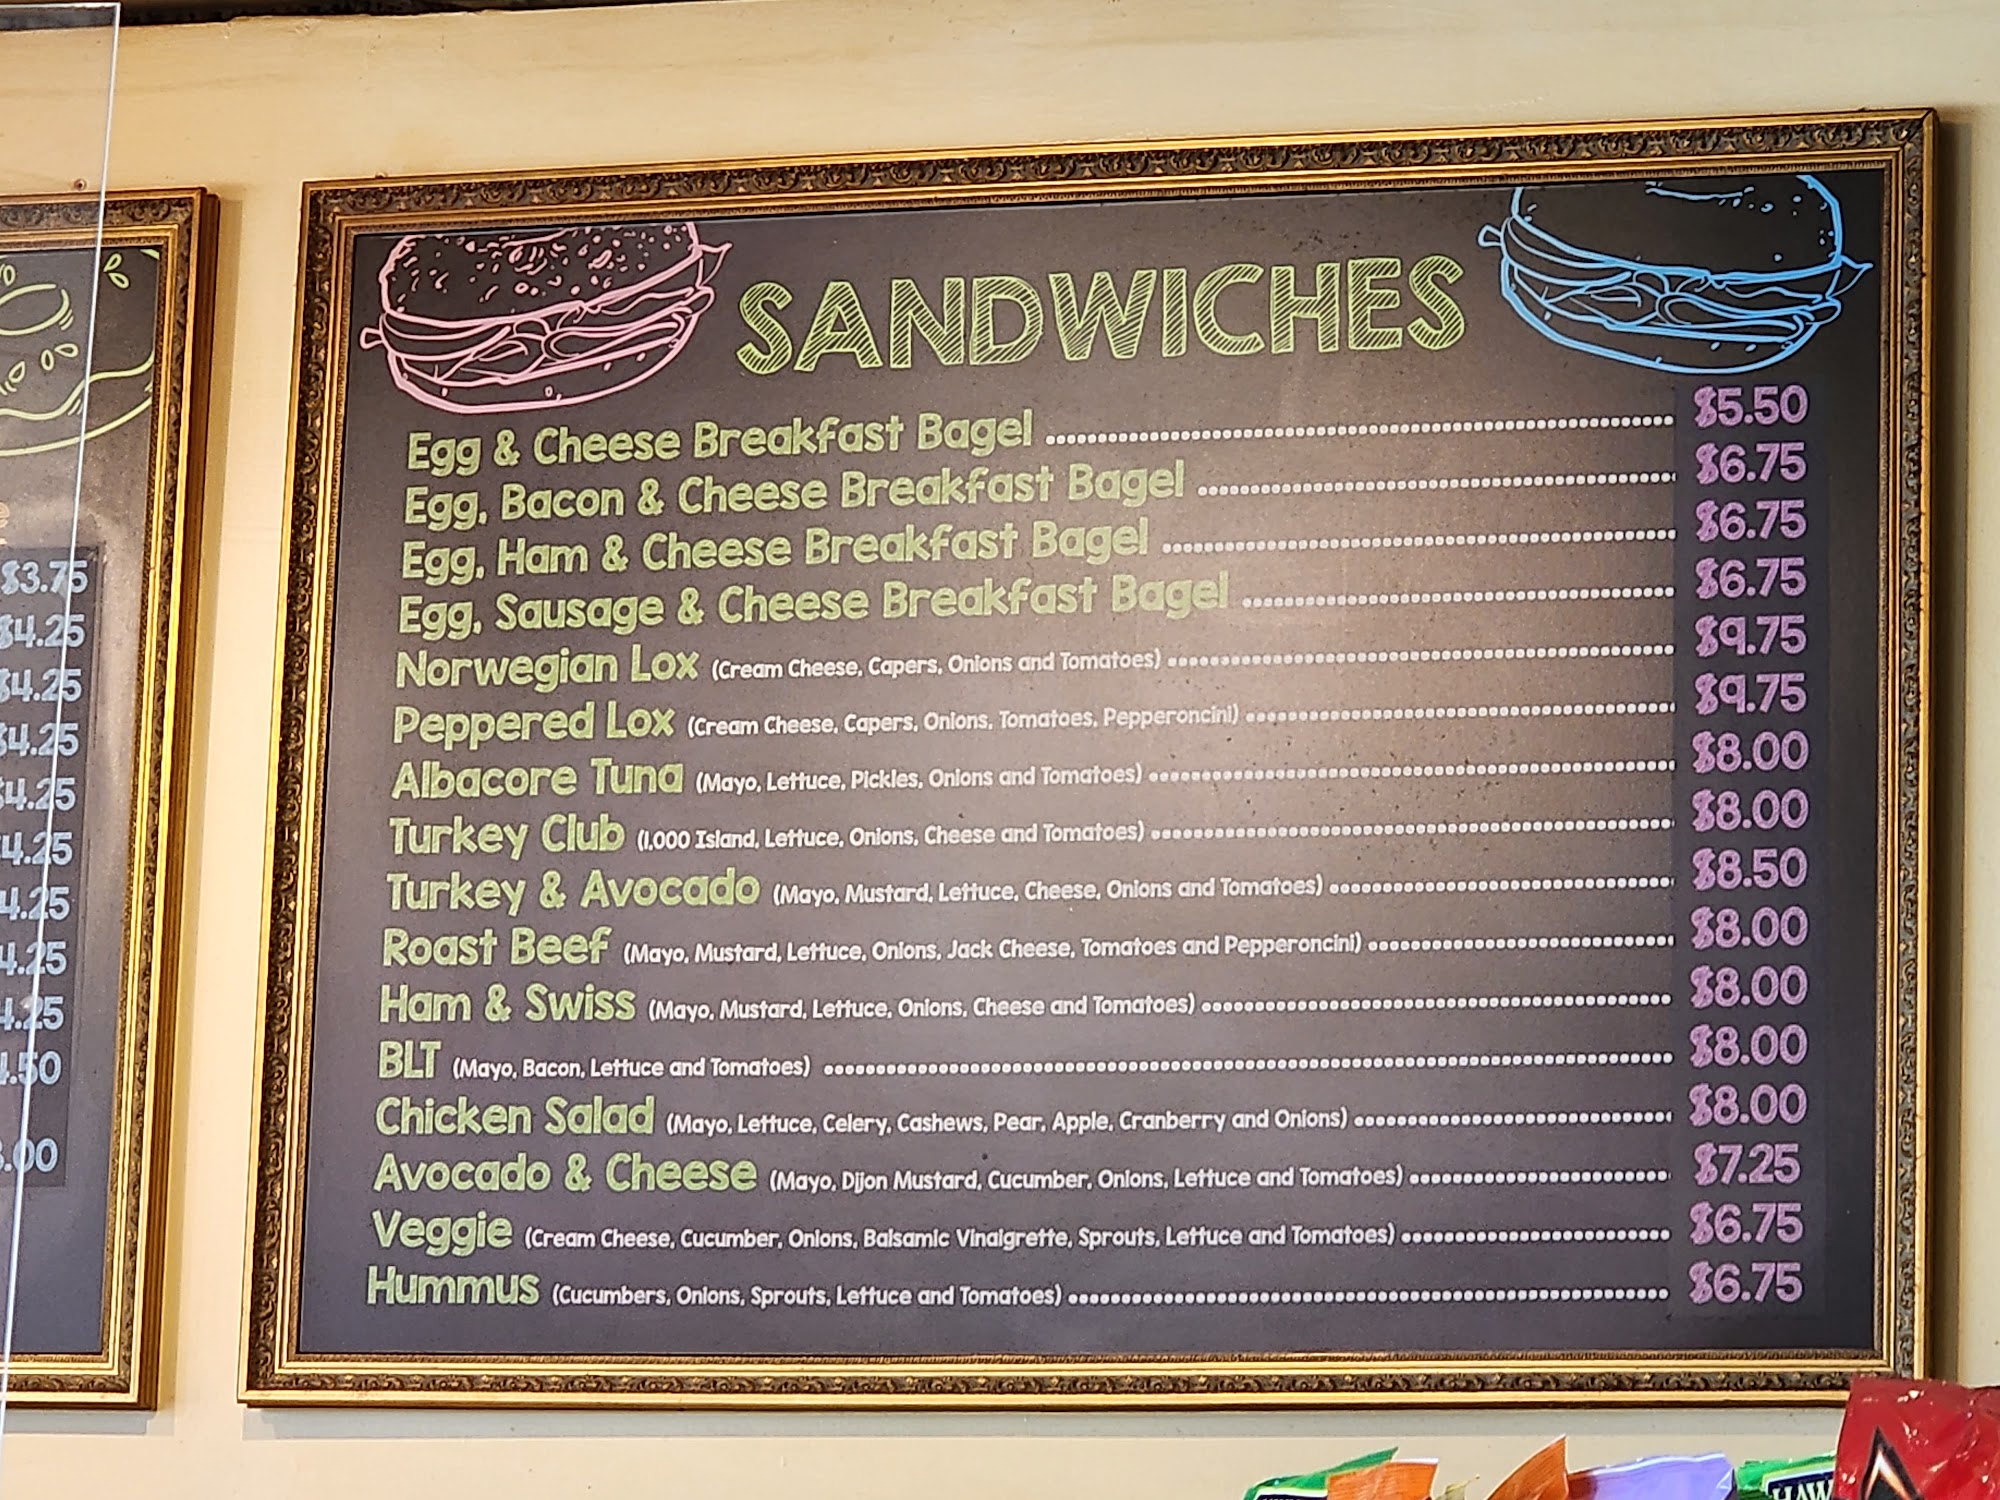 SANDWICHES
Egg & Cheese Breakfast Bagel $5.50
Egg, Bacon & Cheese Breakfast Bagel $6.75
Egg, Ham & Cheese Breakfast Bagel $6.75
Egg, Sausage & Cheese Breakfast Bagel $6.75
Norwegian Lox (Cream Cheese, Capers, Onions and Tomatoes) $9.75
Peppered Lox (Cream Cheese, Capers, Onions, Tomatoes, Pepperoncini) $9.75
Albacore Tuna (Mayo, Lettuce, Pickles, Onions and Tomatoes) $8.00
Turkey Club (1,000 Island, Lettuce, Onions, Cheese and Tomatoes) $8.00
Turkey & Avocado (Mayo, Mustard, Lettuce, Cheese, Onions and Tomatoes) $8.50
Roast Beef (Mayo, Mustard, Lettuce, Onions, Jack Cheese, Tomatoes and Pepperoncini) $8.00
Ham & Swiss (Mayo, Mustard, Lettuce, Onions, Cheese and Tomatoes) $8.00
BLT (Mayo, Bacon, Lettuce and Tomatoes) $8.00
Chicken Salad (Mayo, Lettuce, Celery, Cashews, Pear, Apple, Cranberry and Onions) $8.00
Avocado & Cheese (Mayo, Dijon Mustard, Cucumber, Onions, Lettuce and Tomatoes) $7.25
Veggie (Cream Cheese, Cucumber, Onions, Balsamic Vinaigrette, Sprouts, Lettuce and Tomatoes) $6.75
Hummus (Cucumbers, Onions, Sprouts, Lettuce and Tomatoes) $6.75
$3.75
$4.25
$4.25
$4.25
4.25
4.25
4.25
4.25
4.25
.50
.00
HAW